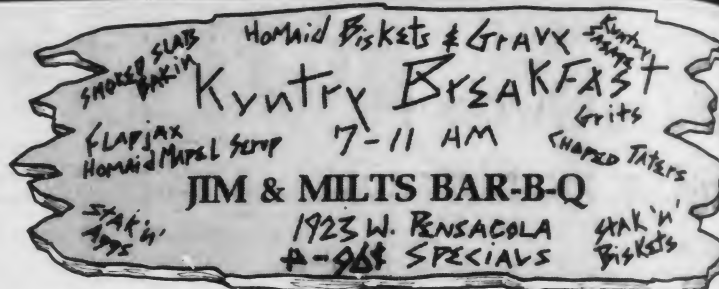 Homaid Biskets & Gravy
SMOKED SLAB BAKIN
Kuntry
Kyntry BreakFast
Grits
FLApjAX
Homaid Mapel Serup
7-11 AM
CHAPED TATERS
JIM & MILTS BAR-B-Q
STAK 'n' Aggs
1923 W. PENSACOLA
SPECIALS
STAK 'n' Biskets